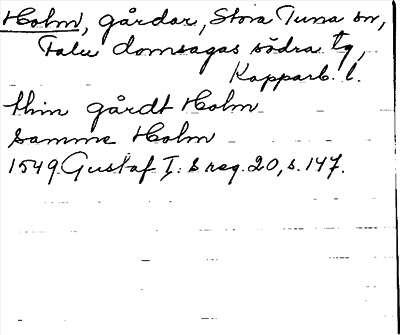 Holm, gårdar, Stora Tuna sn,
Falu domsagas södra tg,
Kopparb. l.
thin gårdt Holm
samme Holm
1549. Gustaf I:s reg. 20, s. 147.